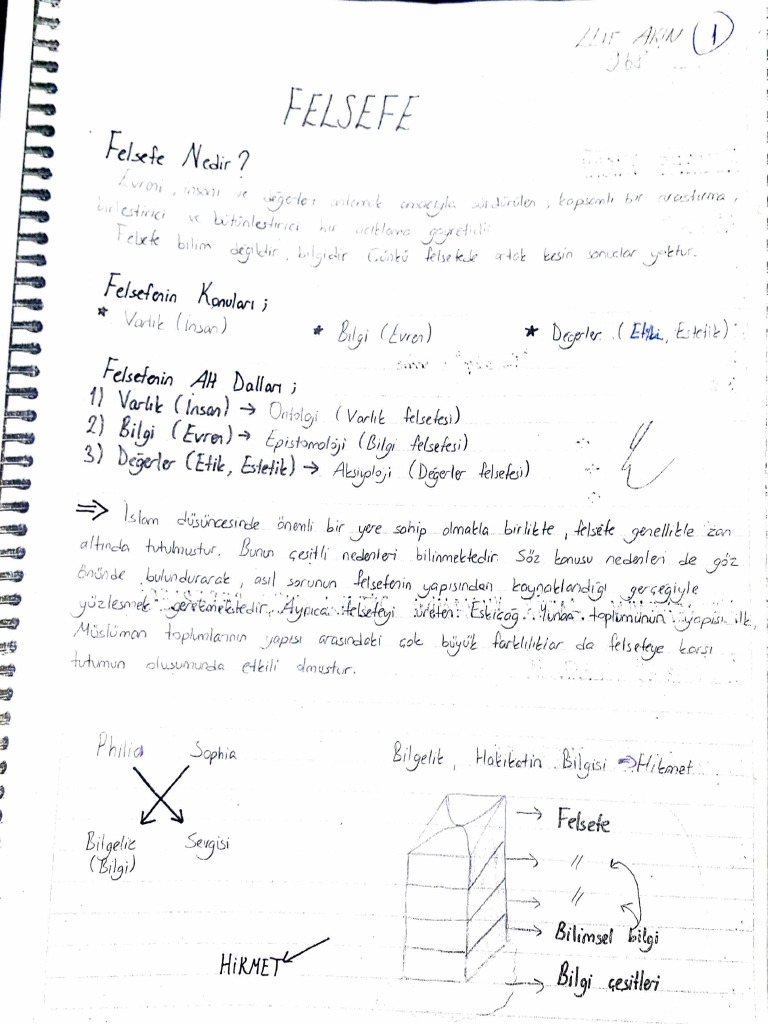 Elif AKIN 1
968
FELSEFE
Felsefe Nedir?
Evreni, insanı ve değerleri anlamak amacıyla sürdürülen, kapsamlı bir araştırma,
birleştirici ve bütünleştirici bir açıklama gayretidir.
Felsefe bilim değildir, bilgidir Çünkü felsefede artık kesin sonuçlar yoktur.
Felsefenin Konuları;
* Varlık (İnsan) * Bilgi (Evren) * Değerler (Etik, Estetik)
Felsefenin Alt Dalları;
1) Varlık (İnsan) → Ontoloji (Varlık felsefesi)
2) Bilgi (Evren) → Epistomoloji (Bilgi felsefesi)
3) Değerler (Etik, Estetik) → Aksiyoloji (Değerler felsefesi)
⇒ İslam düşüncesinde önemli bir yere sahip olmakla birlikte, felsefe genellikle zan
altında tutulmuştur. Bunun çeşitli nedenleri bilinmektedir. Söz konusu nedenleri de göz
önünde bulundurarak, asıl sorunun felsefenin yapısından kaynaklandığı gerçeğiyle
yüzleşmek gerekmektedir. Ayrıca felsefeyi üreten Eskiçağ Yunan toplumunun yapısı ilk
Müslüman toplumlarının yapısı arasındaki çok büyük farklılıklar da felsefeye karşı
tutumun oluşumunda etkili olmuştur.
Philia Sophia
Bilgelik Sevgisi
(Bilgi)
HİKMET
Bilgelik, Hakikatin Bilgisi → Hikmet
→ Felsefe
→ //
→ //
→ Bilimsel bilgi
→ Bilgi çeşitleri